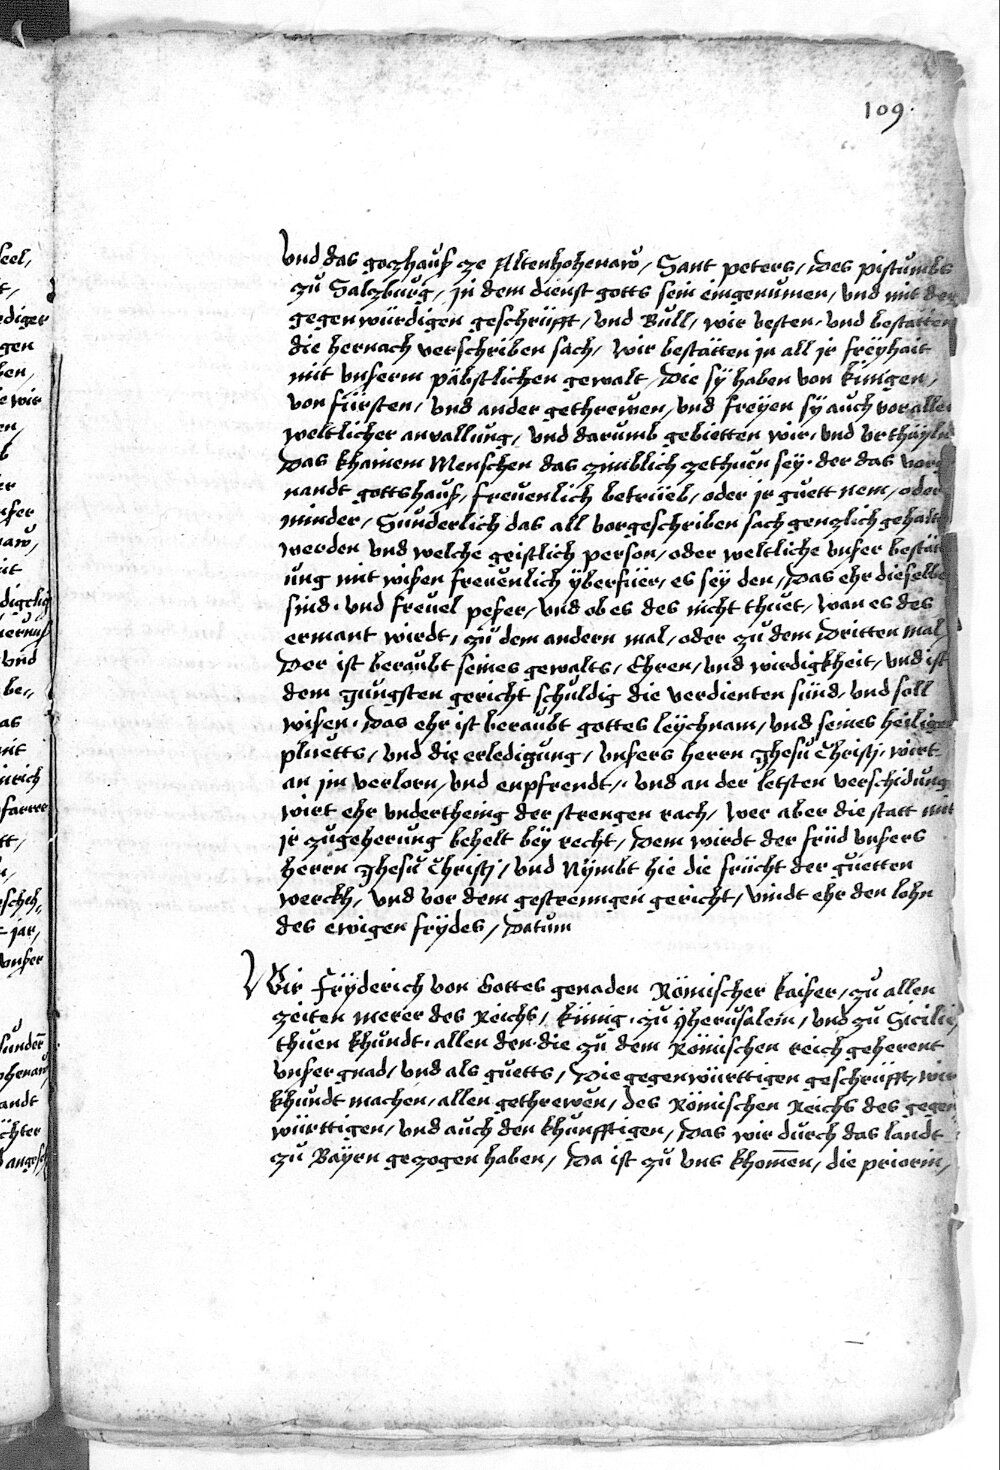 109.
Vnd das gozhauß ze Altenhohenaw, Sant peters, Des pistumbs
zu Salzburg, in dem dienst gotts sein eingenumen, vnd mit der
gegenwürdigen geschrüfft, vnd Bull, wir vesten, vnd bestätten
die hernach verschriben sach, wir bestätten jn all jr freÿhait
mit vnserm päbstlichen gewalt, Die sÿ haben von künigen,
von fürsten, vnd ander gethrewen, vnd freÿen sÿ auch vor aller
weltlicher anvallung, vnd darumb gebietten wir, vnd vrthäÿln
Das khainem Menschen das zimblich zethuen seÿ. der das vorge
nandt gottshauß, freuenlich betrüeb, oder jr guett nem, oder
minder, Sunderlich das all vorgeschriben sach genzlich gehalten
werden vnd welche geistlich person, oder weltliche vnser bestätt
ung mit wißen freuenlich ÿberfüer, es seÿ den, Das ehr dieselbe
sünd. vnd freuel peßer, vnd ob es des nicht thuet, wan es des
ermant wirdt, zu dem andern mal, oder zu dem Dritten mal,
Der ist beraubt seines gewalts, Ehren, vnd wirdigkheit, vnd ist
dem Jungsten gericht schuldig die verdienten sünd, vnd soll
wißen. Das ehr ist beraubt gottes leÿchnam, vnd seines heiligen
pluetts, vnd die erledigung, vnsers herrn Jhesu Christj. wirt
an jm verlorn, vnd enpfrendt,. vnd an der letsten verschidung
wirt ehr vndertheing der strengen rach, wer aber die statt mit
jr zugeherung behelt beÿ recht, Dem wirdt der früd vnsers
herrn Jhesu Christj, vnd Nÿmbt hie die frücht der guetten
werckh, vnd vor dem gestrenngen gericht, vindt ehr den lohn
des ewigen frÿdes, Datum
Wir Frÿderich von Gottes genaden Römischer kaißer, zu allen
zeiten merer des Reichs, künig. zu Jherusalem, vnd zu Sicilie,
thuen khundt. allen den. die zu dem Römischen reich geherent
vnser gnad, vnd als guetts, Die gegenwürttigen geschrüfft, wir
khundt machen, allen gethrewen, des Römischen Reichs des gegen
württigen, vnd auch den khunfftigen, Das wir durch das landt
zu Baÿrn gezogen haben, Da ist zu vns khomen, die priorin,